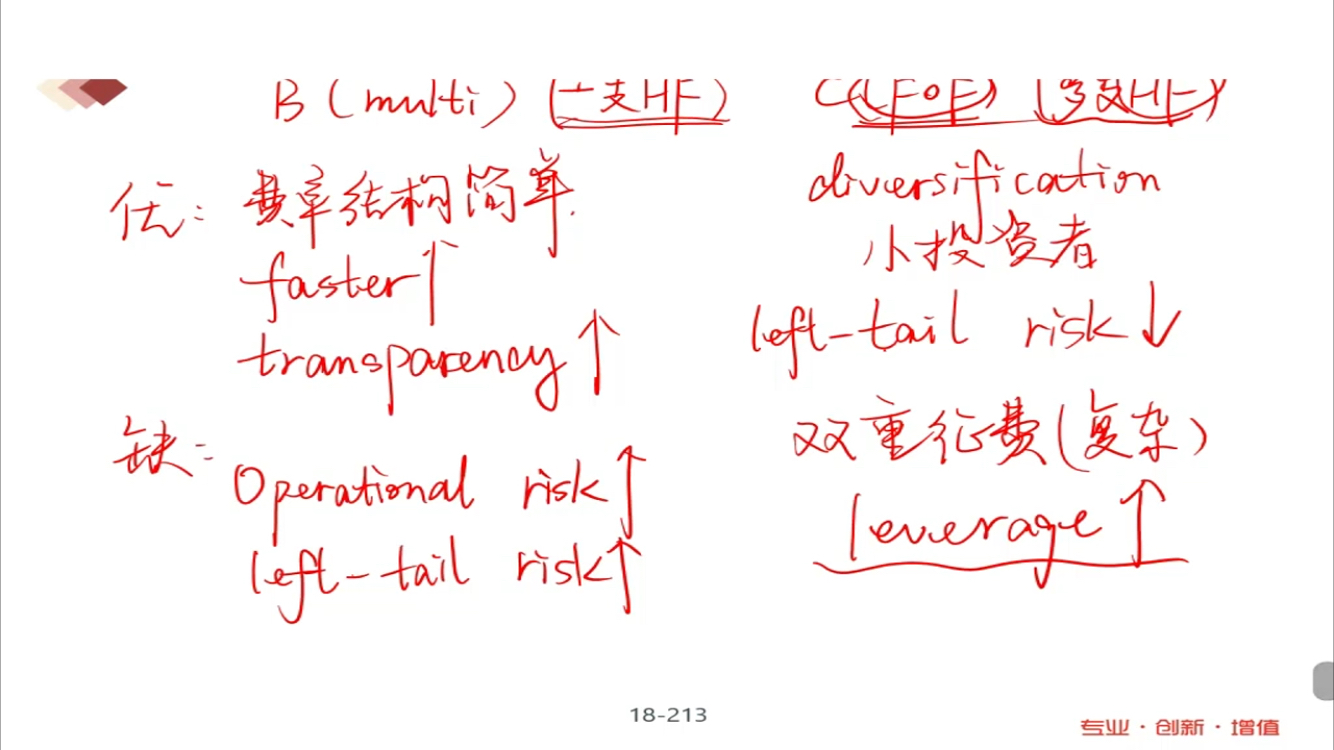 B (multi) (一支HF) C (FoF) (多支HF)
优: 费率结构简单. diversification
faster↑ 小投资者
transparency↑ left-tail risk↓
缺: 双重征费(复杂)
Operational risk↑ leverage↑
left-tail risk↑
18-213
专业·创新·增值